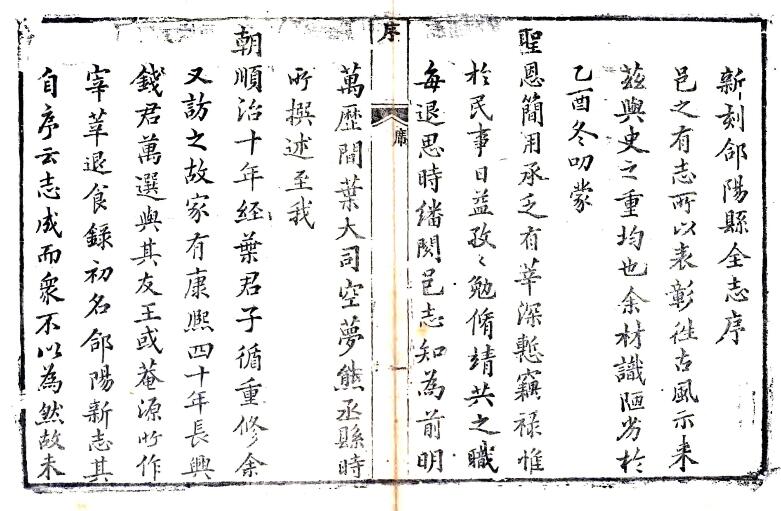 新刻郃陽縣全志序
邑之有志所以表彰徃古風示来
茲與史之重均也余材識陋劣於
乙酉冬叨蒙
聖恩簡用承乏有莘深慙竊祿惟
於民事日益孜〻勉脩靖共之職
每退思時繙閱邑志知為前明
序
萬歷間葉大司空夢熊丞縣時
所撰述至我
朝順治十年經葉君子循重修余
又訪之故家有康熙四十年長興
錢君萬選與其友王或菴源所作
宰莘退食録初名郃陽新志其
自序云志成而衆不以為然故未